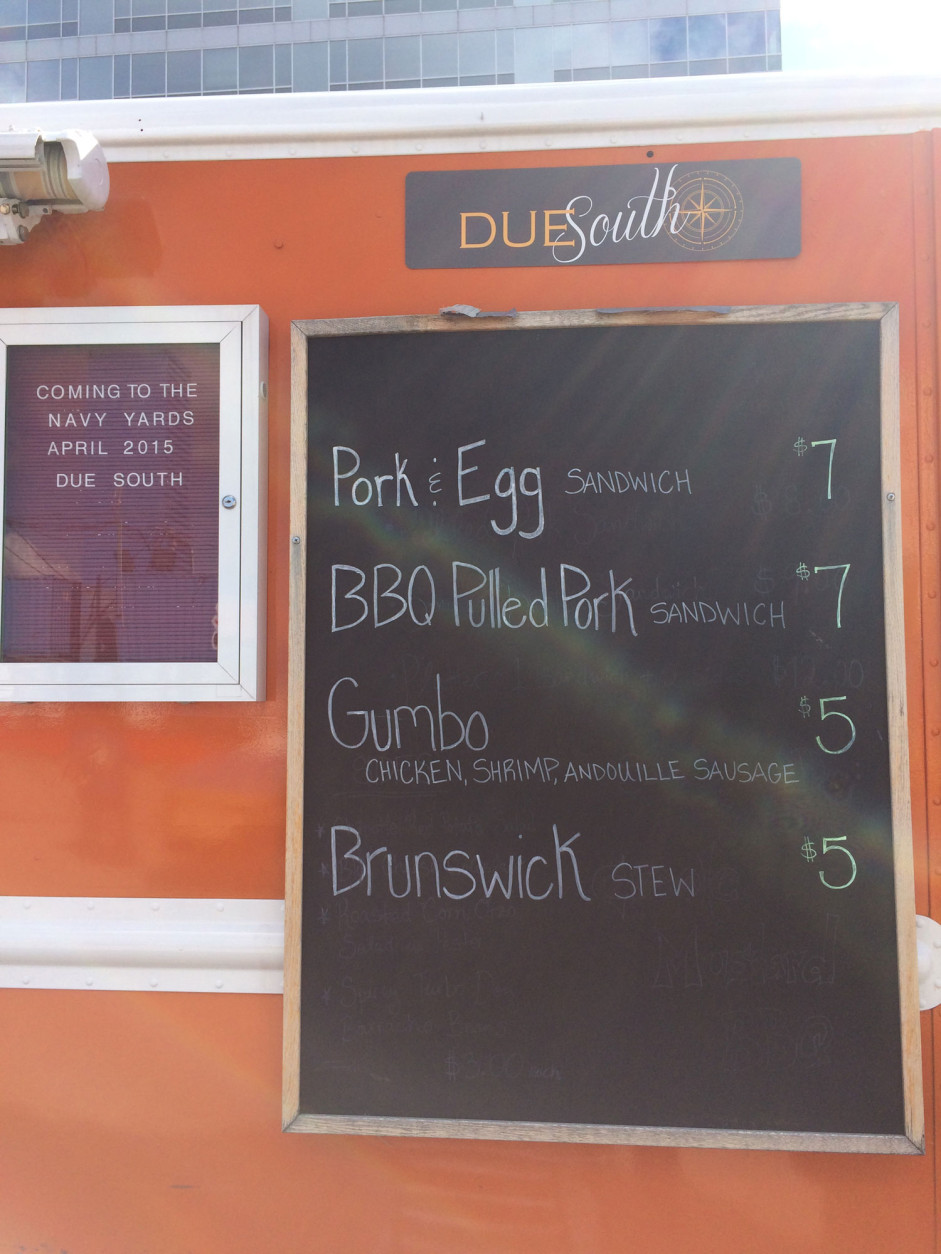 DUE South
COMING TO THE
NAVY YARDS
APRIL 2015
DUE SOUTH
Pork & Egg SANDWICH $7
BBQ Pulled Pork SANDWICH $7
Gumbo $5
CHICKEN, SHRIMP, ANDOUILLE SAUSAGE
Brunswick STEW $5